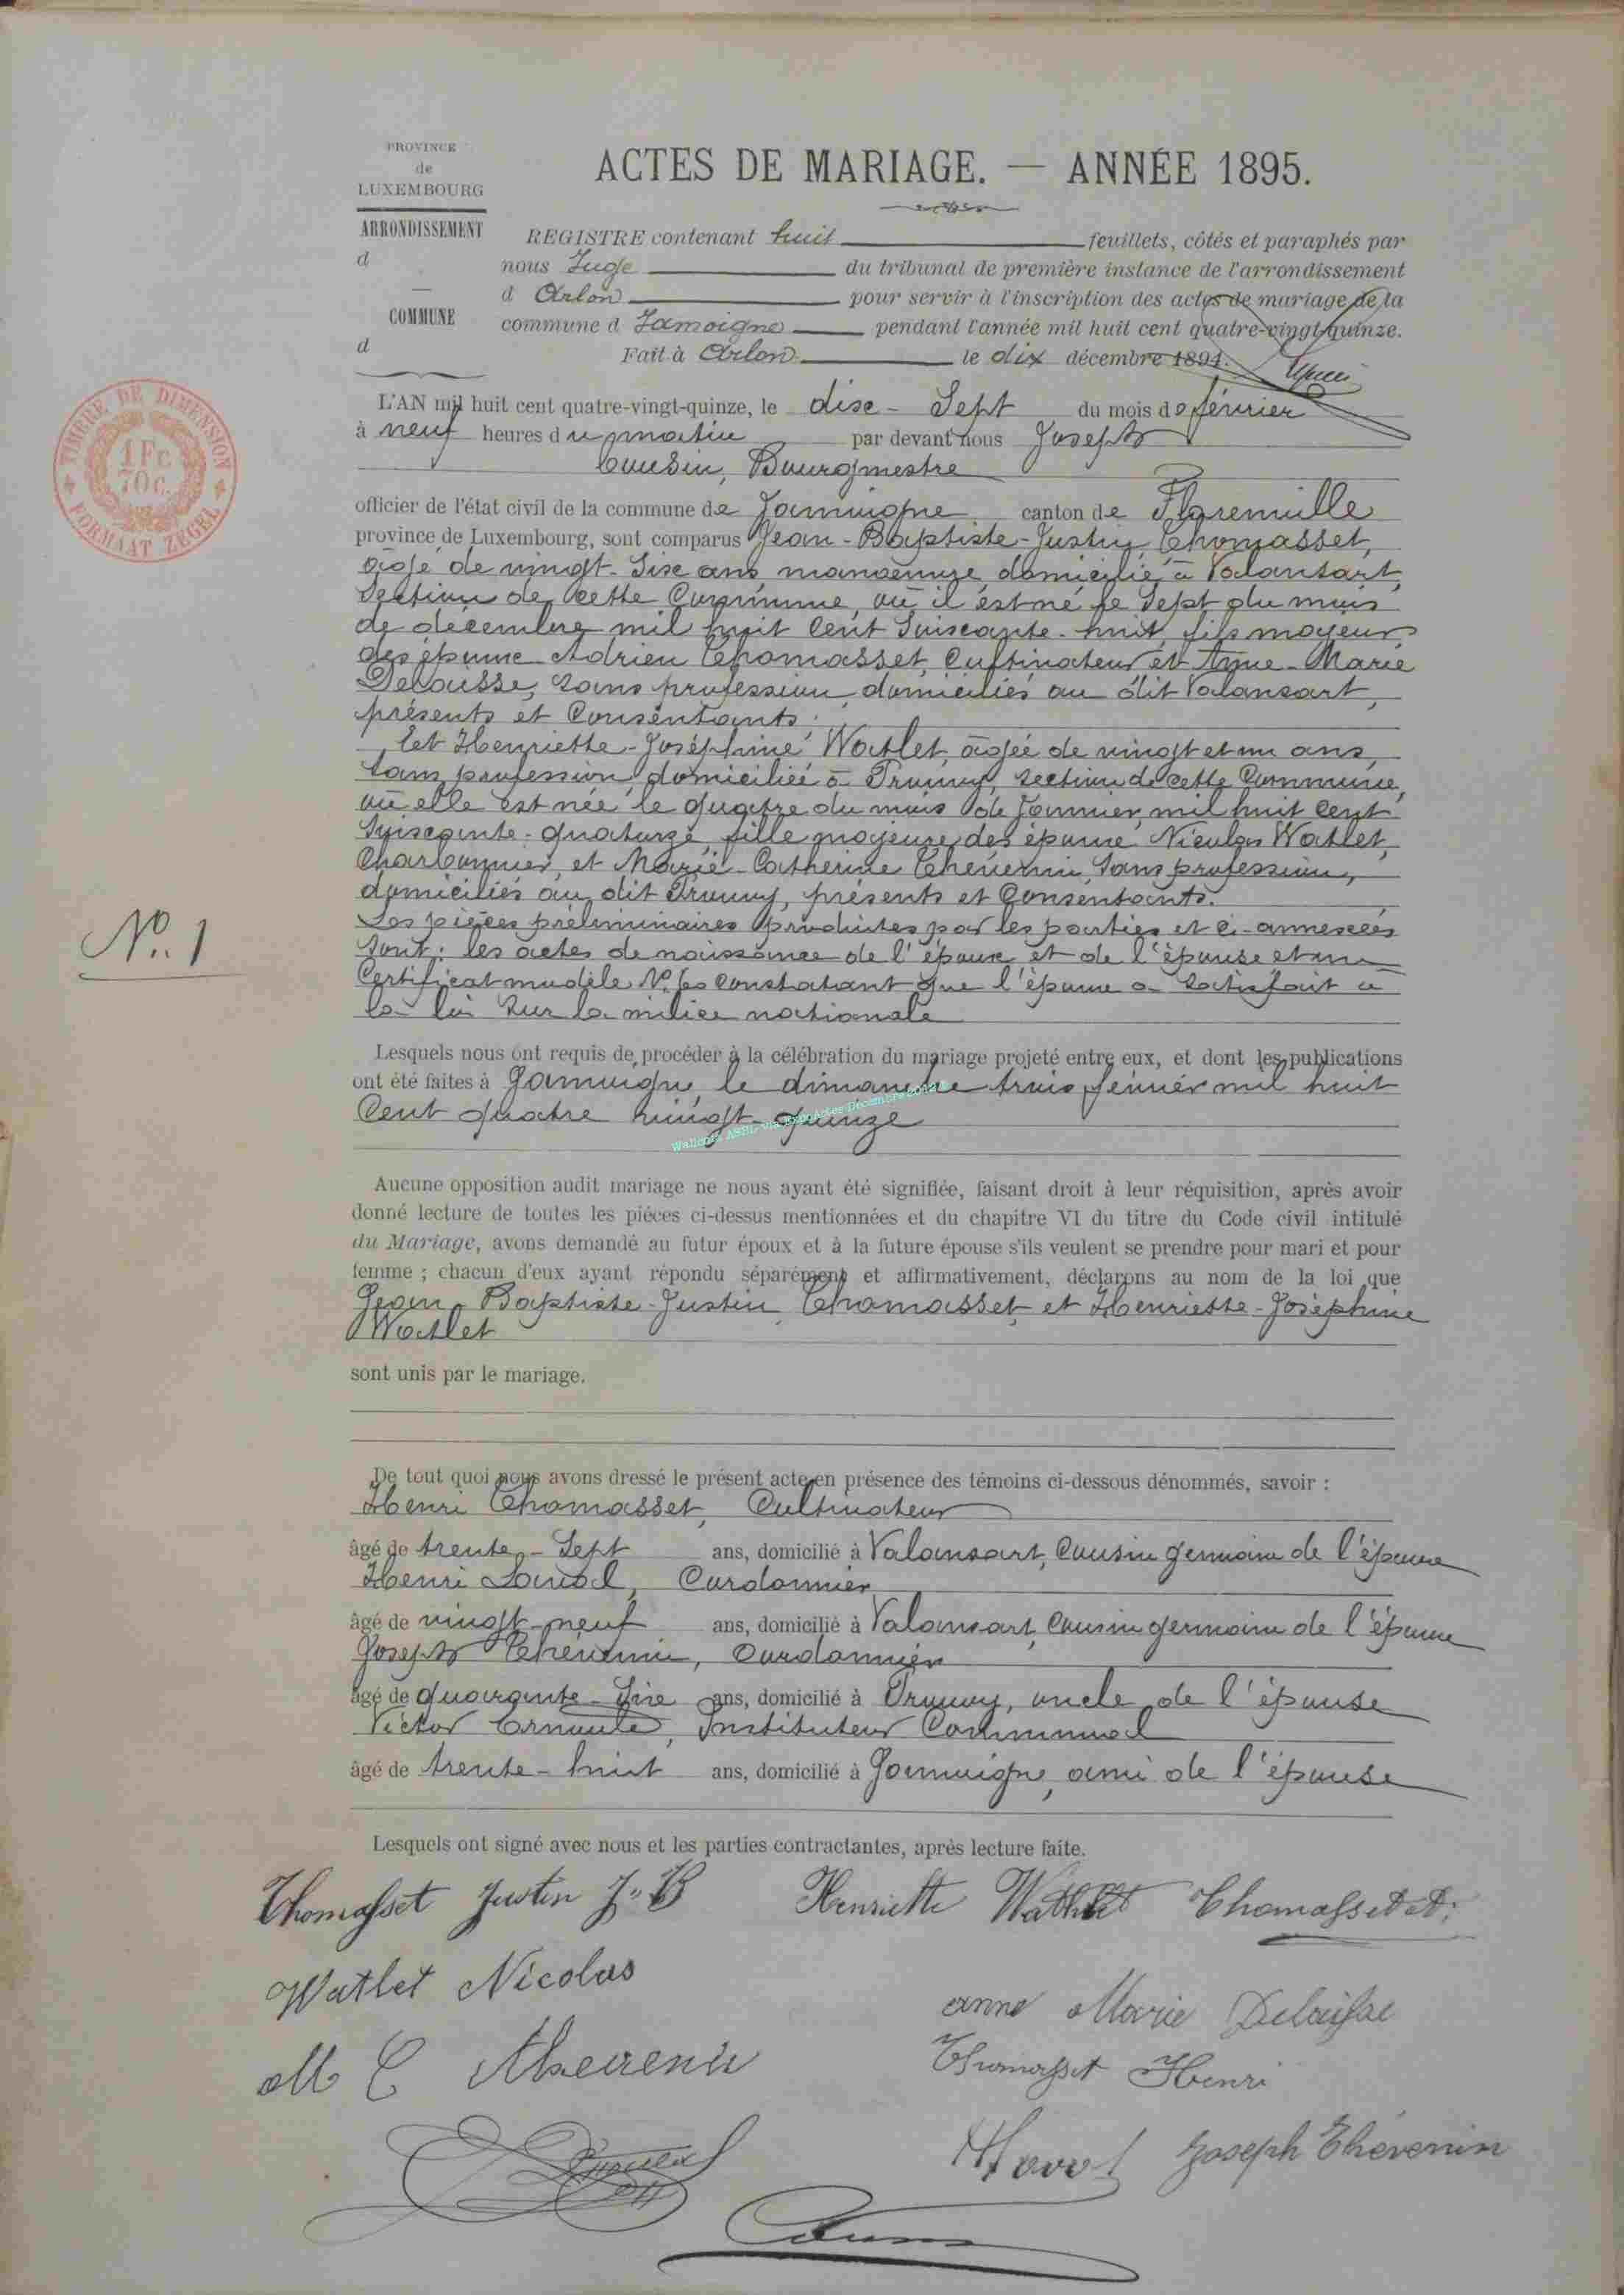 PROVINCE
de
LUXEMBOURG
ARRONDISSEMENT
d
COMMUNE
d
ACTES DE MARIAGE. — ANNÉE 1895.
REGISTRE contenant huit feuillets, côtés et paraphés par
nous Juge du tribunal de première instance de l'arrondissement
d Arlon pour servir à l'inscription des actes de mariage de la
commune d Jamoigne pendant l'année mil huit cent quatre-vingt-quinze.
Fait à Arlon le dix décembre 1894.
TIMBRE DE DIMENSION
1 Fc
70 c.
FORMAAT ZEGEL
L'AN mil huit cent quatre-vingt-quinze, le dix-sept du mois de février
à neuf heures du matin par devant nous Joseph
Cousin, Bourgmestre
officier de l'état civil de la commune de Jamoigne canton de Florenville
province de Luxembourg, sont comparus Jean-Baptiste-Justin Thomasset,
âgé de vingt-six ans, manoeuvre, domicilié à Valansart,
section de cette Commune, où il est né le sept du mois
de décembre mil huit cent soixante-huit, fils majeur
des époux Adrien Thomasset, Cultivateur et Anne-Marie
Delaisse, sans profession, domiciliés au dit Valansart,
présents et Consentants.
Et Henriette-Joséphine Watlet, âgée de vingt et un ans,
sans profession, domiciliée à Prouvy, section de cette Commune,
où elle est née le quatre du mois de Janvier mil huit cent
soixante-quatorze, fille majeure des époux Nicolas Watlet,
Charbonnier, et Marie-Catherine Thévenin, sans profession,
domiciliés au dit Prouvy, présents et Consentants.
Les pièces préliminaires produites par les parties et ci-annexées
sont: les actes de naissance de l'époux et de l'épouse et un
Certificat modèle N° constatant que l'époux a satisfait à
la loi sur la milice nationale
N° 1
Lesquels nous ont requis de procéder à la célébration du mariage projeté entre eux, et dont les publications
ont été faites à Jamoigne, le dimanche trois février mil huit
Cent quatre vingt-quinze
Aucune opposition audit mariage ne nous ayant été signifiée, faisant droit à leur réquisition, après avoir
donné lecture de toutes les pièces ci-dessus mentionnées et du chapitre VI du titre du Code civil intitulé
du Mariage, avons demandé au futur époux et à la future épouse s'ils veulent se prendre pour mari et pour
femme ; chacun d'eux ayant répondu séparément et affirmativement, déclarons au nom de la loi que
Jean-Baptiste-Justin Thomasset et Henriette-Joséphine
Watlet
sont unis par le mariage.
De tout quoi nous avons dressé le présent acte en présence des témoins ci-dessous dénommés, savoir :
Henri Thomasset, Cultivateur
âgé de trente-sept ans, domicilié à Valansart, Cousin germain de l'époux
Henri Lavol, Cordonnier
âgé de vingt-neuf ans, domicilié à Valansart, Cousin germain de l'époux
Joseph Thévenin, Cordonnier
âgé de quarante-six ans, domicilié à Prouvy, oncle de l'épouse
Victor, Instituteur Communal
âgé de trente-huit ans, domicilié à Jamoigne, ami de l'épouse
Lesquels ont signé avec nous et les parties contractantes, après lecture faite.
Thomasset Justin J.B Henriette Wathlet Thomasset A.
Watlet Nicolas
anne Marie Delaisse
M C thevenin
Thomasset Henri
Joseph Thévenin
Cousin